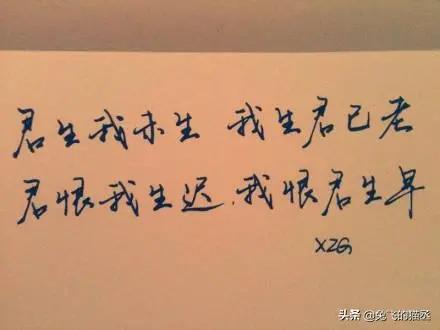 君生我未生 我生君已老
君恨我生迟,我恨君生早
XZG
头条 @兔飞的猫丞